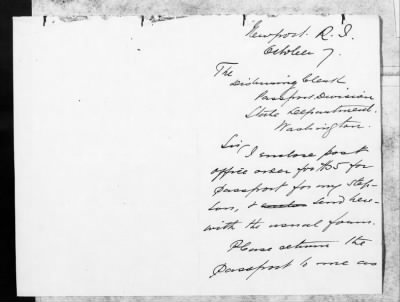 Newport. R. I.
October 7.
The
Disbursing Clerk
Passport Division
State Department.
Washington.
Sir,
I enclose post
office order for $5 for
Passport for my step-
son, & send here-
with the usual form.
Please return the
Passport to me as